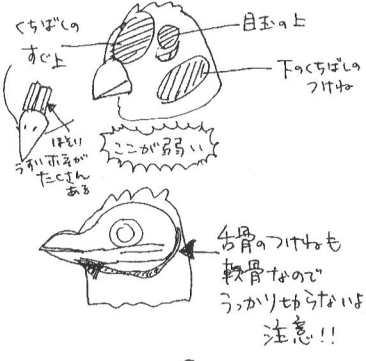 くちばしの
すぐ上
目玉の上
下のくちばしの
つけね
ほそい
うすいホネが
たくさん
ある
ここが弱い
舌骨のつけねも
軟骨なので
うっかり切らないよ
注意!!